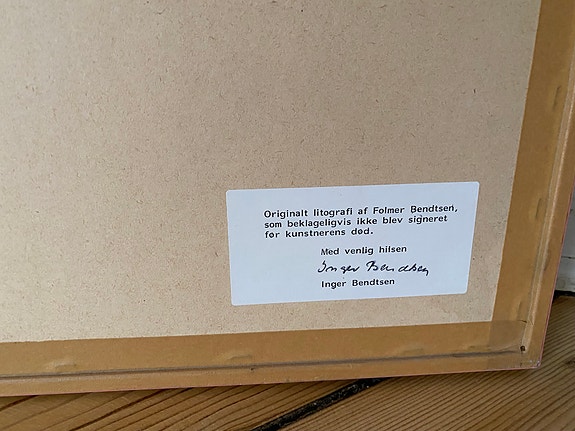 Originalt litografi af Folmer Bendtsen,
som beklageligvis ikke blev signeret
før kunstnerens død.
Med venlig hilsen
Inger Bendtsen
Inger Bendtsen